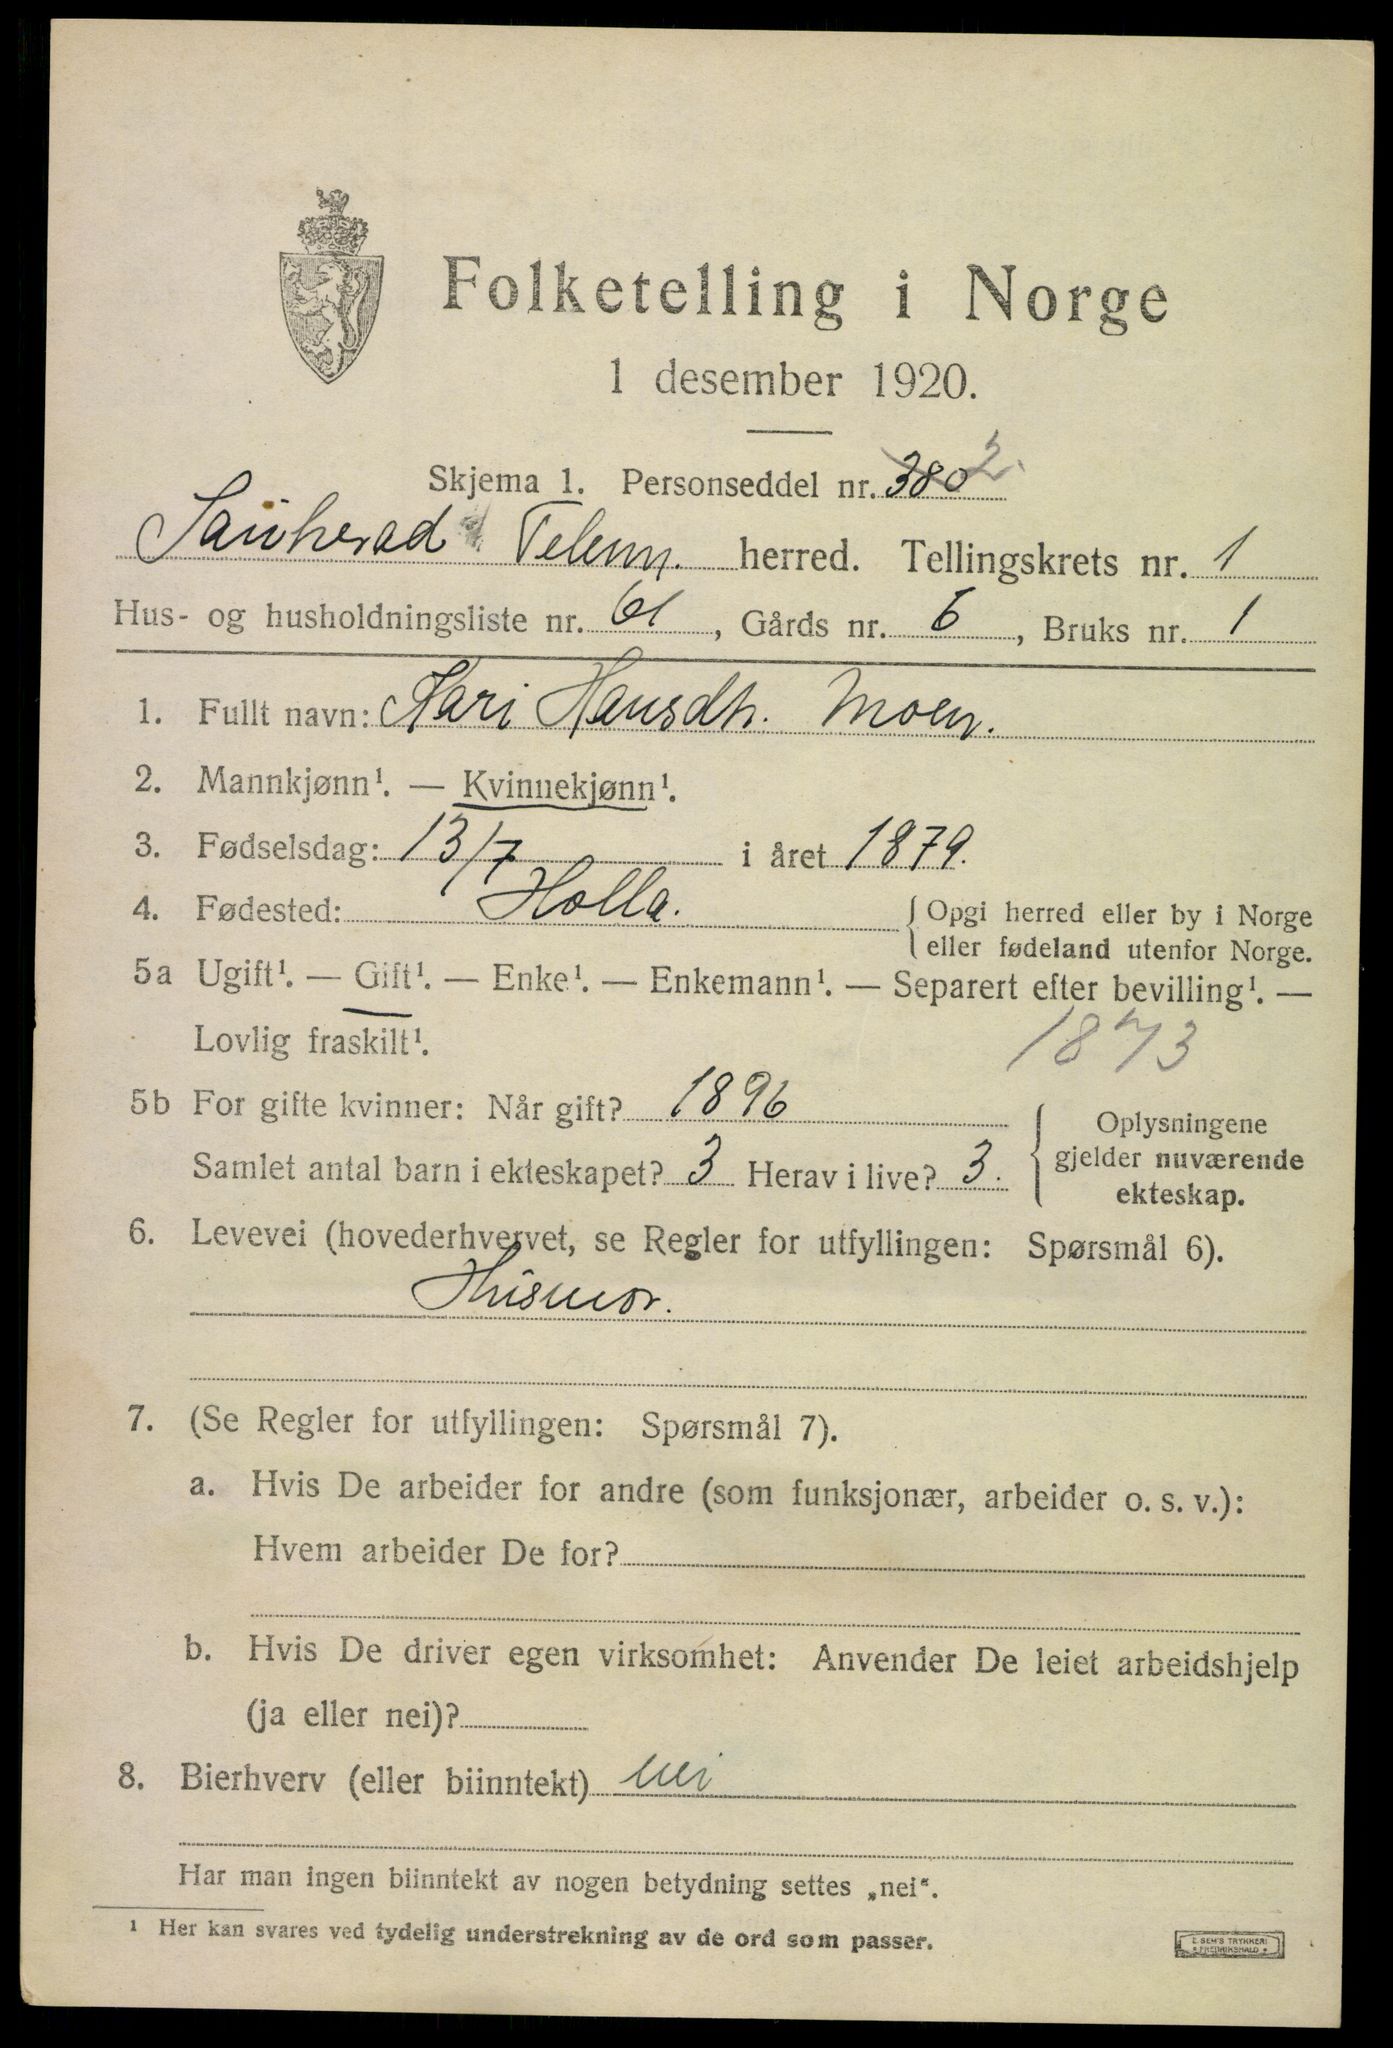 Folketelling i Norge
1 desember 1920.
Skjema 1. Personseddel nr. 380 2.
Sauherad Telem. herred. Tellingskrets nr. 1
Hus- og husholdningsliste nr. 61, Gårds nr. 6, Bruks nr. 1
1. Fullt navn: Kari Hansdtr. Moen.
2. Mannkjønn¹. — Kvinnekjønn¹.
3. Fødselsdag: 13/7 i året 1879.
4. Fødested: Holla. { Opgi herred eller by i Norge
eller fødeland utenfor Norge.
5a Ugift¹. — Gift¹. — Enke¹. — Enkemann¹. — Separert efter bevilling¹. —
Lovlig fraskilt¹. 1873
5b For gifte kvinner: Når gift? 1896
Samlet antal barn i ekteskapet? 3 Herav i live? 3.
{ Oplysningene
gjelder nuværende
ekteskap.
6. Levevei (hovederhvervet, se Regler for utfyllingen: Spørsmål 6).
Husmor.
7. (Se Regler for utfyllingen: Spørsmål 7).
a. Hvis De arbeider for andre (som funksjonær, arbeider o. s. v.):
Hvem arbeider De for?
b. Hvis De driver egen virksomhet: Anvender De leiet arbeidshjelp
(ja eller nei)?
8. Bierhverv (eller biinntekt) nei
Har man ingen biinntekt av nogen betydning settes „nei“.
¹ Her kan svares ved tydelig understrekning av de ord som passer.
E. SEM'S TRYKKERI
FREDRIKSHALD